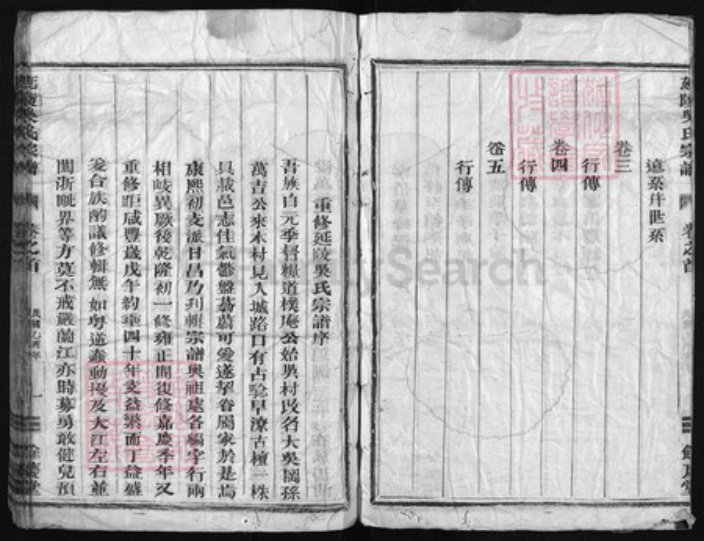 遠系幷世系
卷三
行傳
卷四
行傳
卷五
行傳
延陵吳氏宗譜
卷之首
餘慶堂
重修延陵吳氏宗譜序
吾族自元季督糧道樸庵公始吳村改名大吳國孫
萬吉公來木村見入城路口有占驗旱潦古檀一株
具載邑志佳氣鬱盤蓊蔚可愛遂挈眷屬家於是焉
康熙初支派日昌乃刋輯宗譜與祖處各編字行兩
相歧異厥後乾隆初一修雍正間復修嘉慶季年又
重修距咸豐歲戊午約畧四十年支益繁而丁益盛
爰合族酌議修輯無如粵逆蠢動擾及大江左右並
閩浙毗界等方莫不戒嚴蘭江亦時募勇敢健兒預
延陵吳氏宗譜
卷之首
民國乙
一
餘慶堂